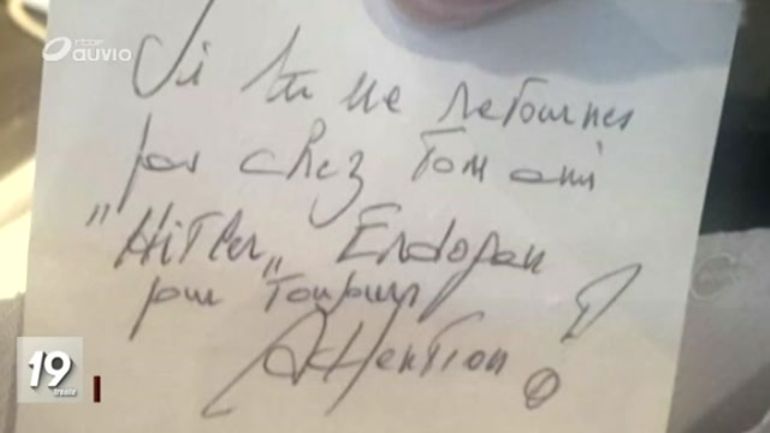 rtbf
auvio
Si tu ne retournes
pas chez ton ami
"Hitler" Erdogan
pour toujours !
Attention !
19
trente